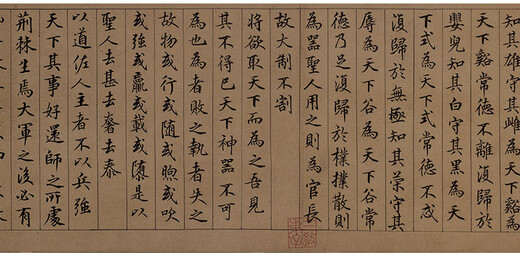 知其雄守其雌為天下谿為
天下谿常德不離復歸於
嬰兒知其白守其黑為天
下式為天下式常德不忒
復歸於無極知其榮守其
辱為天下谷為天下谷常
德乃足復歸於樸樸散則
為器聖人用之則為官長
故大制不割
將欲取天下而為之吾見
其不得已天下神器不可
為也為者敗之執者失之
故物或行或隨或煦或吹
或強或羸或載或隳是以
聖人去甚去奢去泰
以道佐人主者不以兵強
天下其事好還師之所處
荊棘生焉大軍之後必有